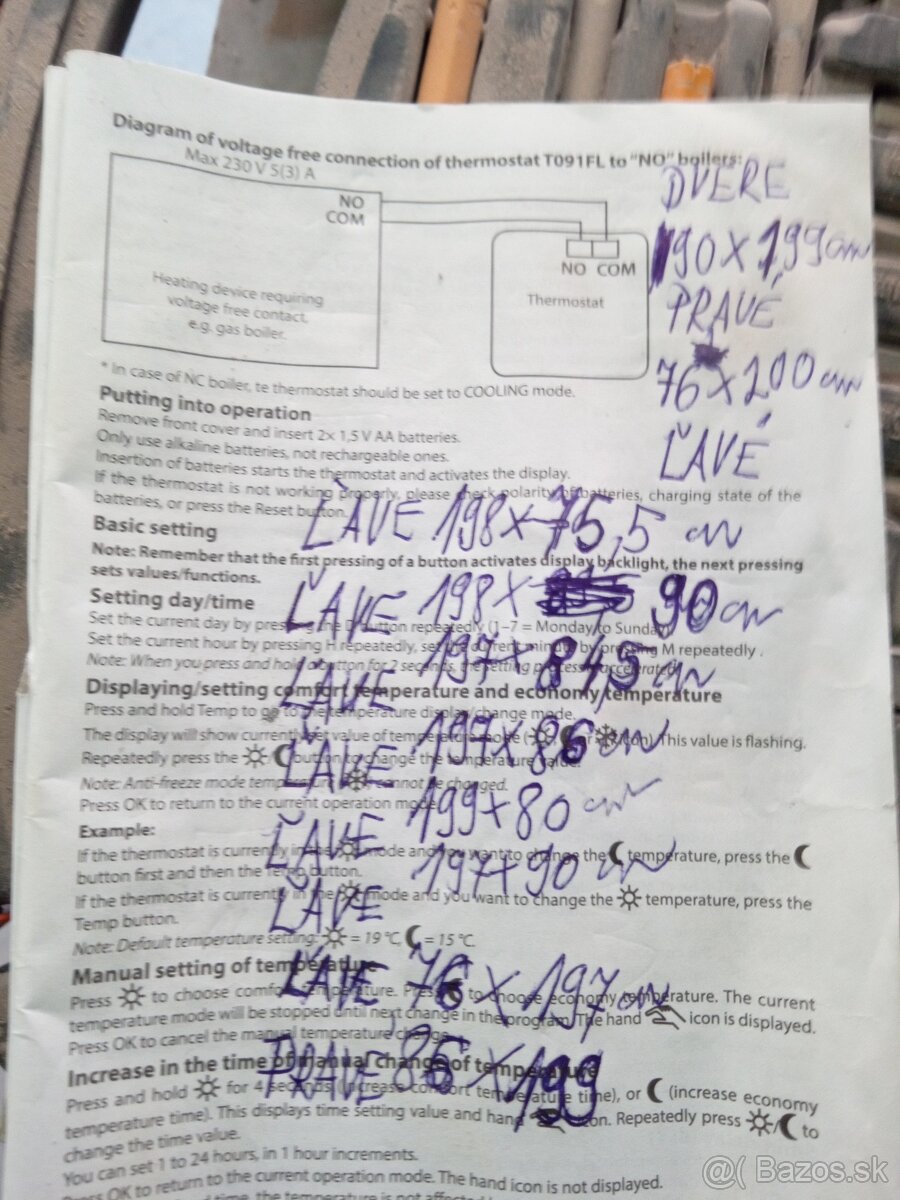 Diagram of voltage free connection of thermostat T091FL to "NO" boilers:
Max 230 V 5(3) A
NO
COM
NO COM
Heating device requiring
voltage free contact,
e.g. gas boiler.
Thermostat
DVERE
90 x 199 cm
PRAVÉ
76 x 200 cm
ĽAVÉ
* In case of NC boiler, te thermostat should be set to COOLING mode.
Putting into operation
Remove front cover and insert 2x 1,5 V AA batteries.
Only use alkaline batteries, not rechargeable ones.
Insertion of batteries starts the thermostat and activates the display.
If the thermostat is not working properly, please check polarity of batteries, charging state of the
batteries, or press the Reset button.
ĽAVE 198 x 75,5 cm
Basic setting
Note: Remember that the first pressing of a button activates display backlight, the next pressing
sets values/functions.
ĽAVE 198 x 90 cm
Setting day/time
Set the current day by pressing the D button repeatedly (1–7 = Monday to Sunday)
Set the current hour by pressing H repeatedly, set the current minute by pressing M repeatedly .
Note: When you press and hold a button for 2 seconds, the setting process is accelerated.
ĽAVE 197 x 87,5 cm
Displaying/setting comfort temperature and economy temperature
Press and hold Temp to go to the temperature display/change mode.
The display will show currently set value of temperature mode (☀, ☾ or ❄ icon). This value is flashing.
ĽAVE 197 x 86 cm
Repeatedly press the ☀/☾ button to change the temperature value.
Note: Anti-freeze mode temperature ❄ cannot be changed.
Press OK to return to the current operation mode.
ĽAVE 199 x 80 cm
Example:
If the thermostat is currently in the ☀ mode and you want to change the ☾ temperature, press the ☾
button first and then the Temp button.
ĽAVE 197 x 90 cm
If the thermostat is currently in the ☀ mode and you want to change the ☀ temperature, press the
Temp button.
Note: Default temperature setting: ☀ = 19 °C, ☾ = 15 °C.
Manual setting of temperature
ĽAVE 76 x 197 cm
Press ☀ to choose comfort temperature. Press ☾ to choose economy temperature. The current
temperature mode will be stopped until next change in the program. The hand icon is displayed.
Press OK to cancel the manual temperature change.
PRAVE 86 x 199
Increase in the time of manual change of temperature
Press and hold ☀ for 4 seconds (increase comfort temperature time), or ☾ (increase economy
temperature time). This displays time setting value and hand icon. Repeatedly press ☀/☾ to
change the time value.
You can set 1 to 24 hours, in 1 hour increments.
Press OK to return to the current operation mode. The hand icon is not displayed.
time, the temperature is not
@( Bazos.sk